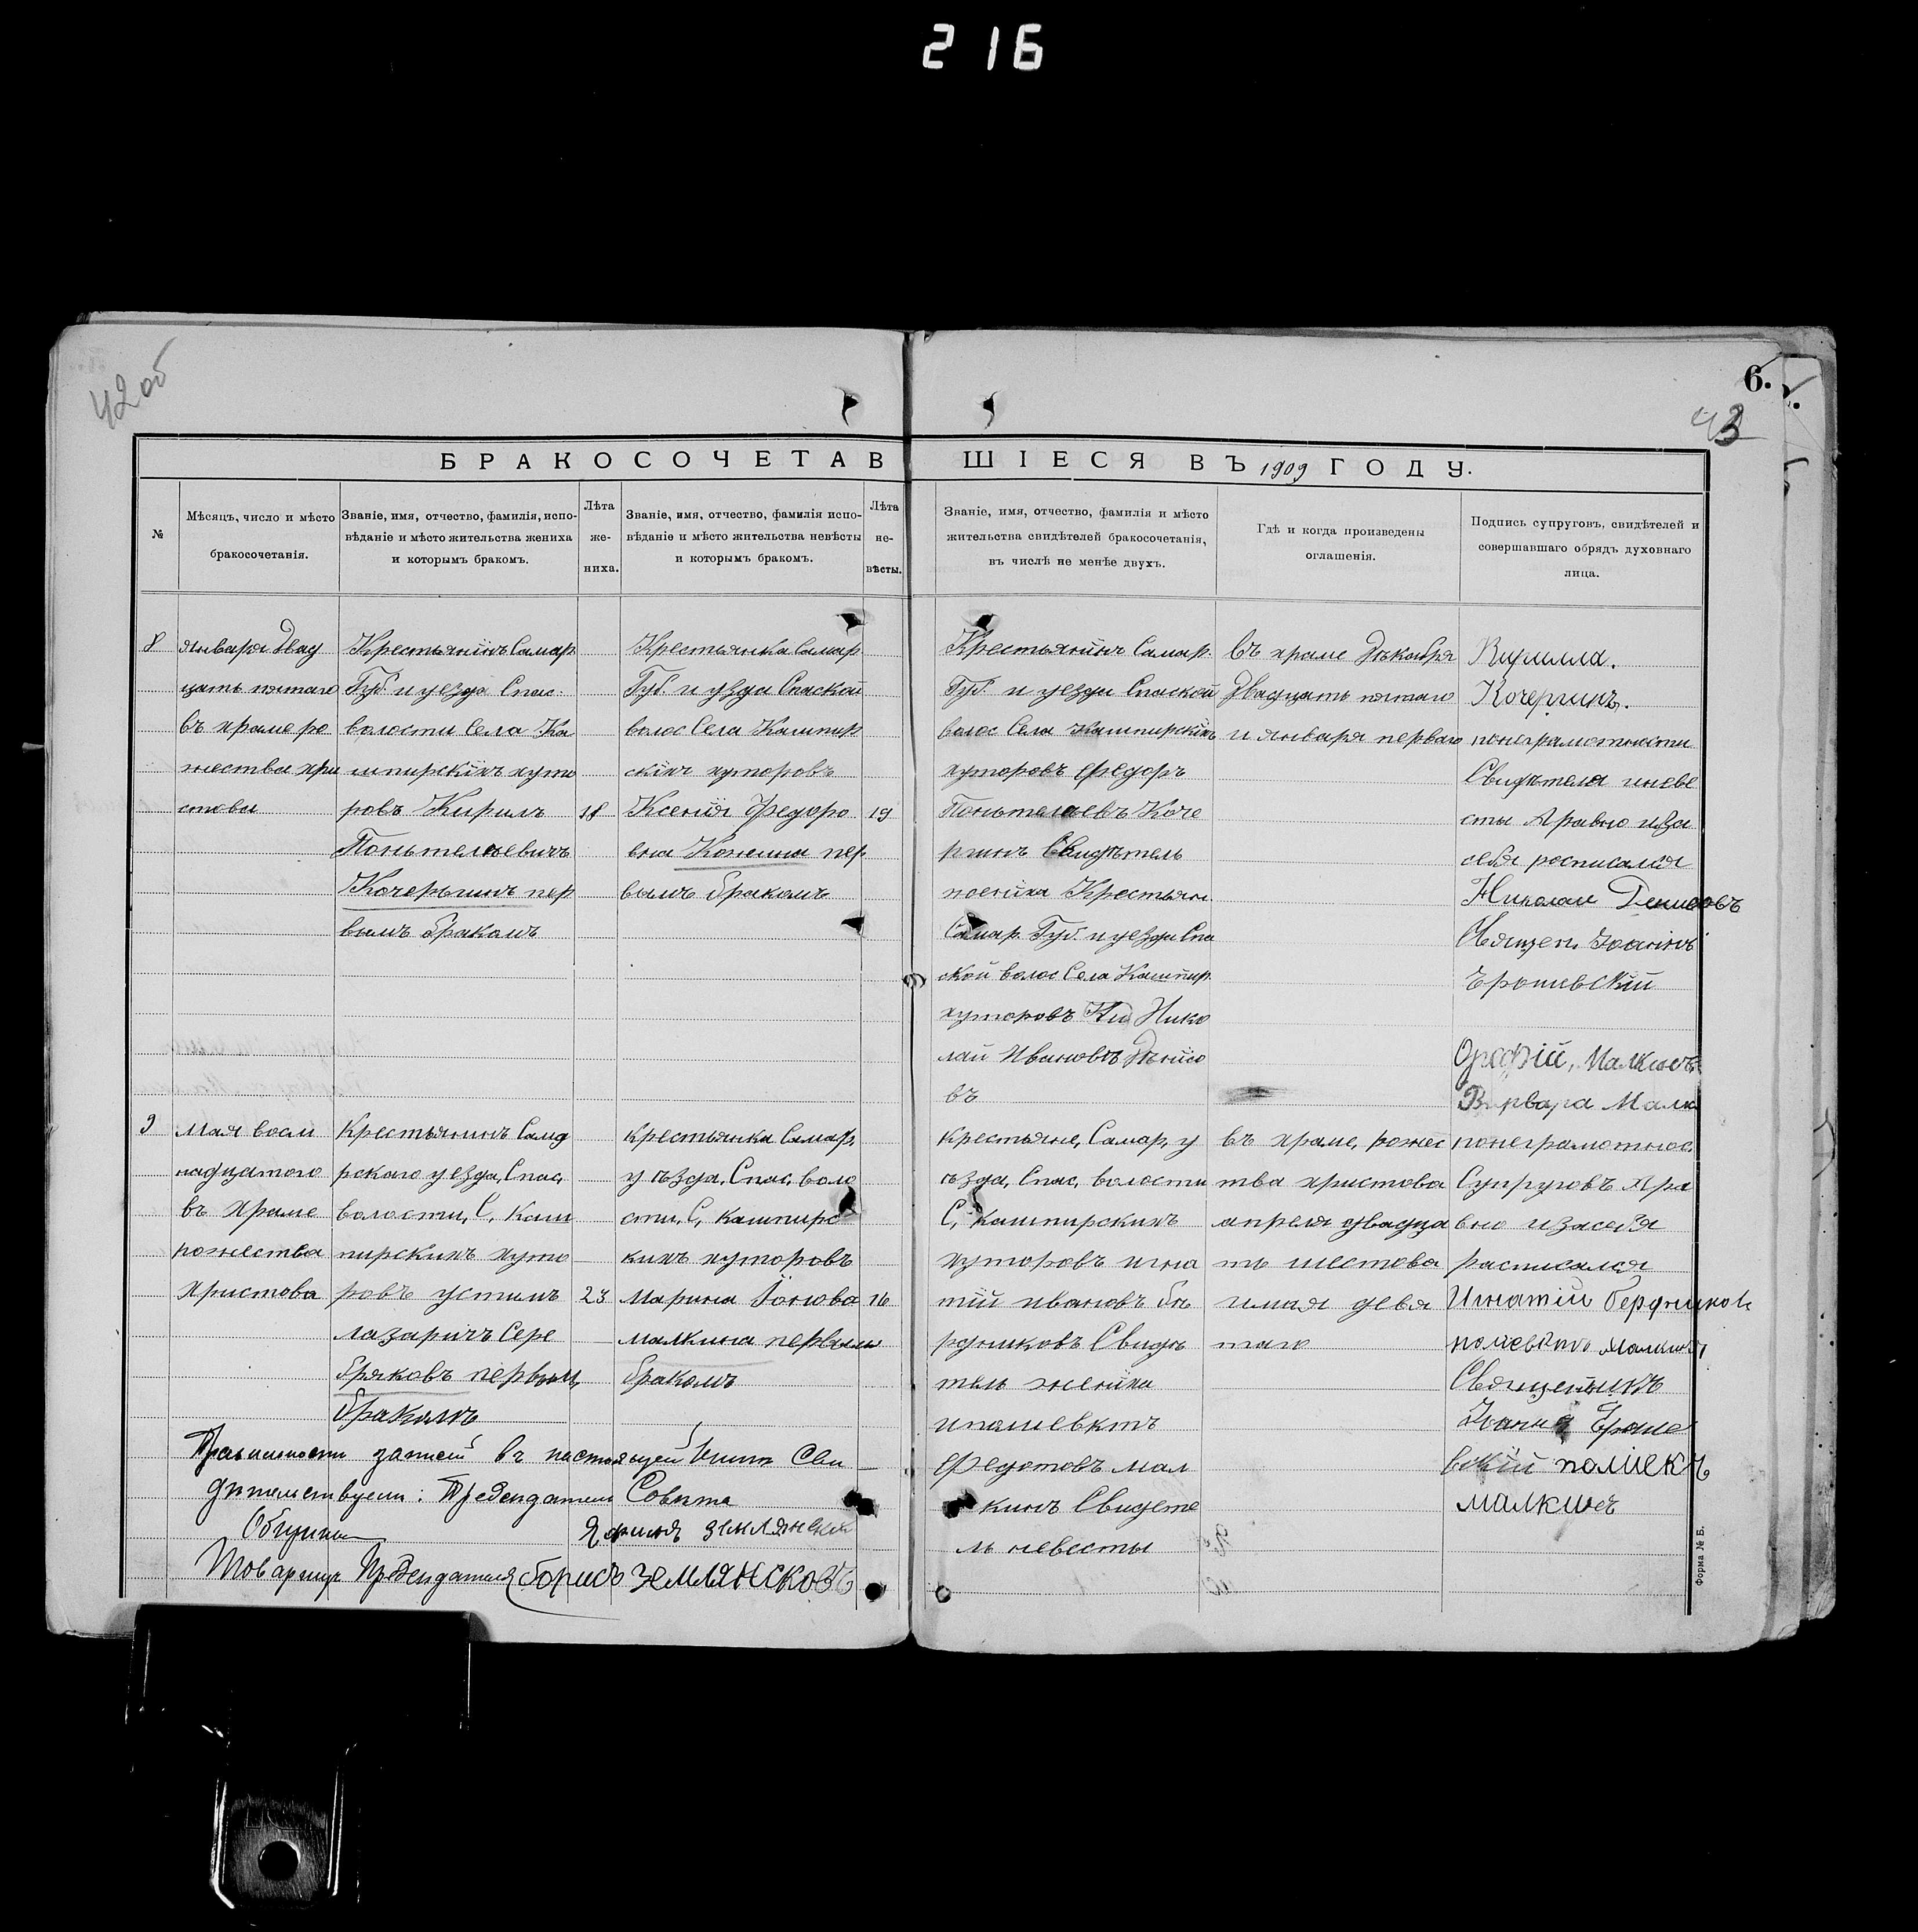 216
42об
6.
43
БРАКОСОЧЕТАВШІЕСЯ ВЪ 1909 ГОДУ.
№
Мѣсяцъ, число и мѣсто
бракосочетанія.
Званіе, имя, отчество, фамилія, испо-
вѣданіе и мѣсто жительства жениха
и которымъ бракомъ.
Лѣта
же-
ниха.
Званіе, имя, отчество, фамилія испо-
вѣданіе и мѣсто жительства невѣсты
и которымъ бракомъ.
Лѣта
не-
вѣсты.
Званіе, имя, отчество, фамилія и мѣсто
жительства свидѣтелей бракосочетанія,
въ числѣ не менѣе двухъ.
Гдѣ и когда произведены
оглашенія.
Подпись супруговъ, свидѣтелей и
совершавшаго обрядъ духовнаго
лица.
8
января двад
цать пятаго
въ храме ро
жества хри
стова
Крестьянинъ Самар
Губ. и уезда Спас.
волости Села Ка
шпирскихъ хуто
ровъ Кирилъ
Поньтелѣевичъ
Кочерьгинъ пер
вымъ бракомъ
18
Крестьянка Самар
Губ. и уезда Спаской
волос Села Кашпир
скихъ хуторовъ
Ксения Федоро
вна Конгина пер
вымъ бракомъ
19
Крестьянинъ Самар.
Губ. и уезда Спаской
волос Села Кашпирскихъ
хуторовъ Федоръ
Поньтелѣевъ Коче
ргинъ Свидѣтель
жениха Крестьян
Самар. Губ. и уезда Спа
ской волос Села Кашпир.
хуторовъ Нико
лай Ивановъ Дениса
въ
въ храме Декабря
двадцать пятаго
и января перваго
Кирилла.
Кочергинъ.
понеграмотности
Свидѣтеля и неве
сты Аравно иза
себя росписалъя
Николаи Денисовъ
Священ. Иоаннъ
Ерофий, Малкинъ
Варвара Малк
9
мая восм
надцатого
въ храме
рожества
христова
Крестьянинъ Самд
рскаго уезда, Спас,
волости, С, Каш
пирскихъ хуто
ровъ устинъ
лазаричъ Сере
бряковъ первым,
бракамъ
23
крестьянка Самар,
уѣзда, Спас, воло
сти, С, кашпирс
кихъ хуторовъ
Марина Іонова
малкина первымъ
бракомъ
16
крестьяне, Самар, у
ѣзда, Спас, волости
С, кашпирскихъ
хуторовъ игна
тій ивановъ бе
рдниковъ Свидѣ
тель жениха
иполиевктъ
Федотовъ мал
кинъ Свидете
ль невесты
въ храме, рожес
тва христова
апреля двадца
ть шестова
имая девя
таго
понеграмотнос,
Супруговъ Ара
вно изасебя
расписался
Игнатій бердниковъ
малкинъ
Священикъ
Иоаннъ
полиекъ
малкинъ
Правильность записей въ настоящей книге Сви
дѣтельствуемъ: Председатель Совѣта
Общины
землянсков
Товарищъ Председателя борисъ землянсковъ
Форма № Б.